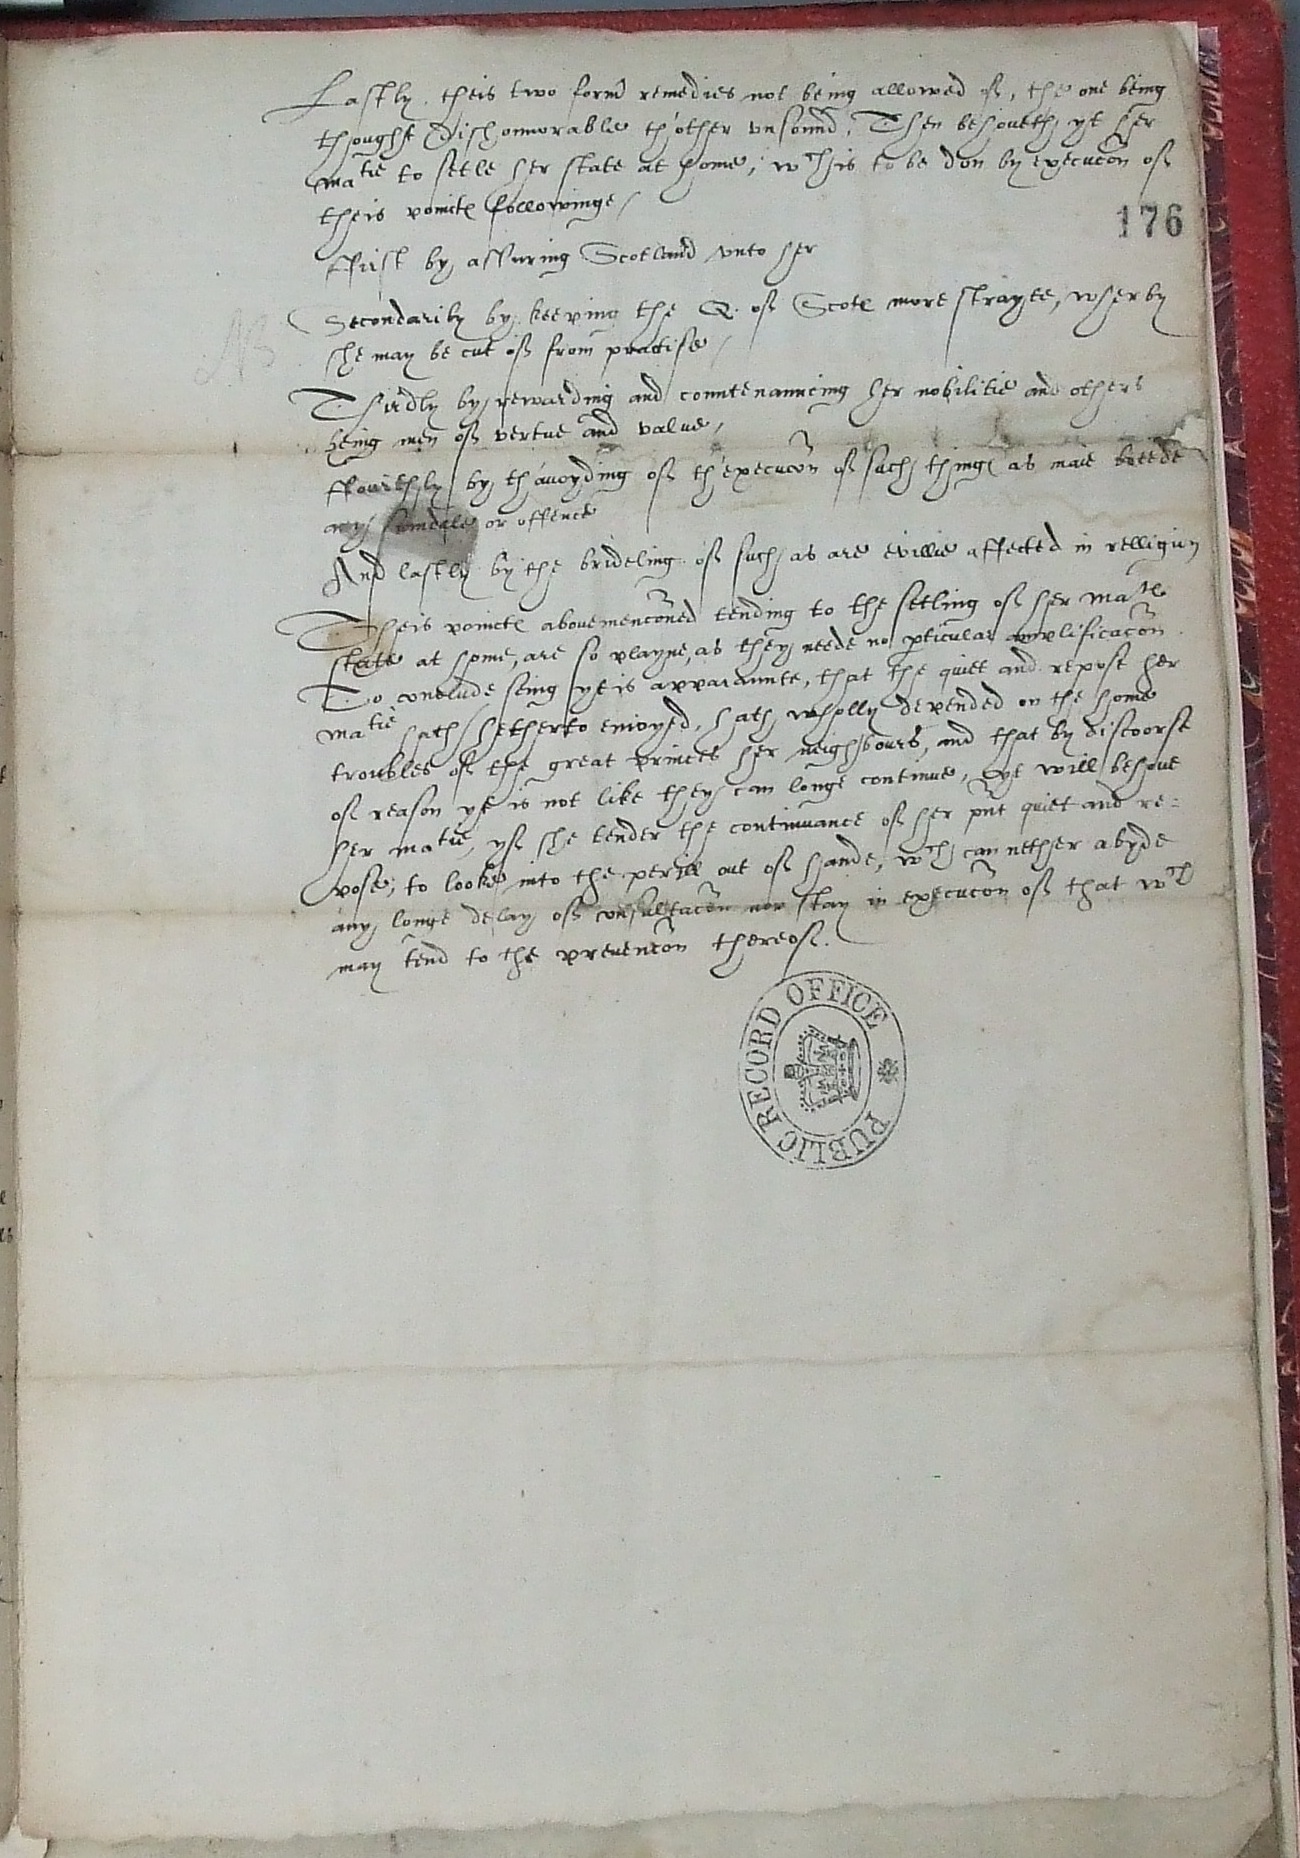 Lastly, theis two formr remedies not being allowed of, the one being
thought dishonnorable th'other unsound, Then behoueth yt her
matie to setle her state at home, wch is to be don by execucon of
theis pointe followinge /
176
ffirst by assuring Scotland vnto her
Secondarily by keeping the Q. of Scote more strayte, wherby
she may be cut of from practise /
NB
Thirdly by rewarding and countenauncing her nobilitie and others
being men of vertue and value,
ffourthly by th'auoyding of th'execucon of such thinge as maie breede
any scandale or offence
And lastly by the brideling of such as are evillie affected in relligion
Theis pointe abovemenconed tending to the setling of her mate
state at home, are so playne, as they neede no pticular amplificacon
To conclude seing yt is apparaunte, that the quiet and repose her
matie hath hetherto enioyed, hath wholly depended on the home
troubles of the great princes her neighbours, and that by discoorse
of reason yt is not like they can longe continue, yt will behoue
her matie, yf she tender the continuance of her pnt quiet and re=
pose, to looke into the perill out of hande, wch can nether abyde
any longe delay of consultacon nor stay in execucon of that wch
may tend to the prevencon thereof.
PUBLIC RECORD OFFICE